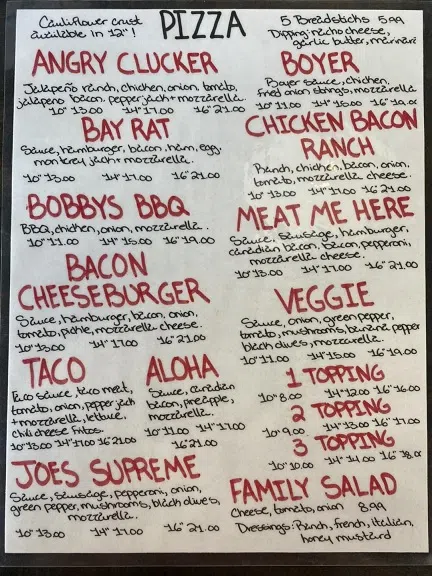 Cauliflower crust
available in 12"!
PIZZA
5 Breadsticks 5.99
Dipping: nacho cheese,
garlic butter, marinara
ANGRY CLUCKER
Jalapeño ranch, chicken, onion, tomato,
jalapeno bacon, pepperjack + mozzarella.
10" 13.00 14" 17.00 16" 21.00
BOYER
Boyer sauce, chicken,
fried onion strings, mozzarella.
10" 11.00 14" 15.00 16" 19.00
BAY RAT
Sauce, hamburger, bacon, ham, egg,
monterey jack + mozzarella.
10" 13.00 14" 17.00 16" 21.00
CHICKEN BACON
RANCH
Ranch, chicken, bacon, onion,
tomato, mozzarella cheese.
10" 13.00 14" 17.00 16" 21.00
BOBBYS BBQ
BBQ, chicken, onion, mozzarella.
10" 11.00 14" 15.00 16" 19.00
MEAT ME HERE
Sauce, sausage, hamburger,
canadian bacon, bacon, pepperoni,
mozzarella cheese.
10" 13.00 14" 17.00 16" 21.00
BACON
CHEESEBURGER
Sauce, hamburger, bacon, onion,
tomato, pickle, mozzarella cheese.
10" 13.00 14" 17.00 16" 21.00
VEGGIE
Sauce, onion, green pepper,
tomato, mushrooms, banana pepper
black olives, mozzarella.
10" 11.00 14" 15.00 16" 19.00
TACO
taco sauce, taco meat,
tomato, onion, pepper jack
+ mozzarella, lettuce,
chili cheese fritos.
10" 13.00 14" 17.00 16" 21.00
ALOHA
Sauce, canadian
bacon, pineapple,
mozzarella.
10" 11.00 14" 17.00
16" 21.00
1 TOPPING
10" 8.00 14" 12.00 16" 16.00
2 TOPPING
10" 9.00 14" 13.00 16" 17.00
3 TOPPING
10" 10.00 14" 14.00 16" 18.00
JOES SUPREME
Sauce, sausage, pepperoni, onion,
green pepper, mushrooms, black olives,
mozzarella.
10" 13.00 14" 17.00 16" 21.00
FAMILY SALAD
Cheese, tomato, onion 8.99
Dressings: Ranch, french, italian,
honey mustard